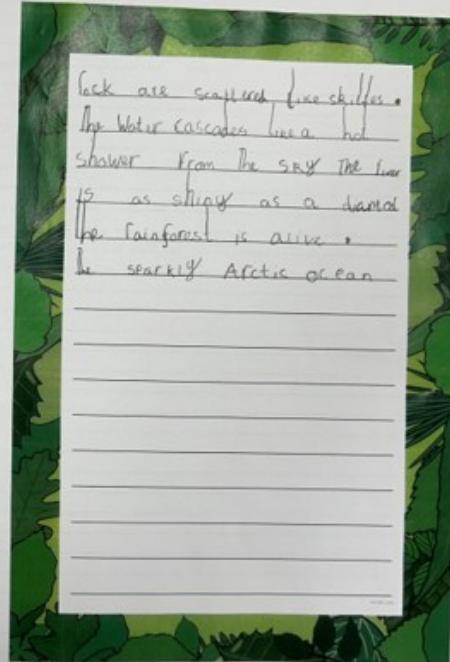 rock are scattered like skittles.
The Water cascades like a hot
shower from the sky The river
is as shiny as a diamod
the rainforest is alive.
The sparkly Arctic ocean